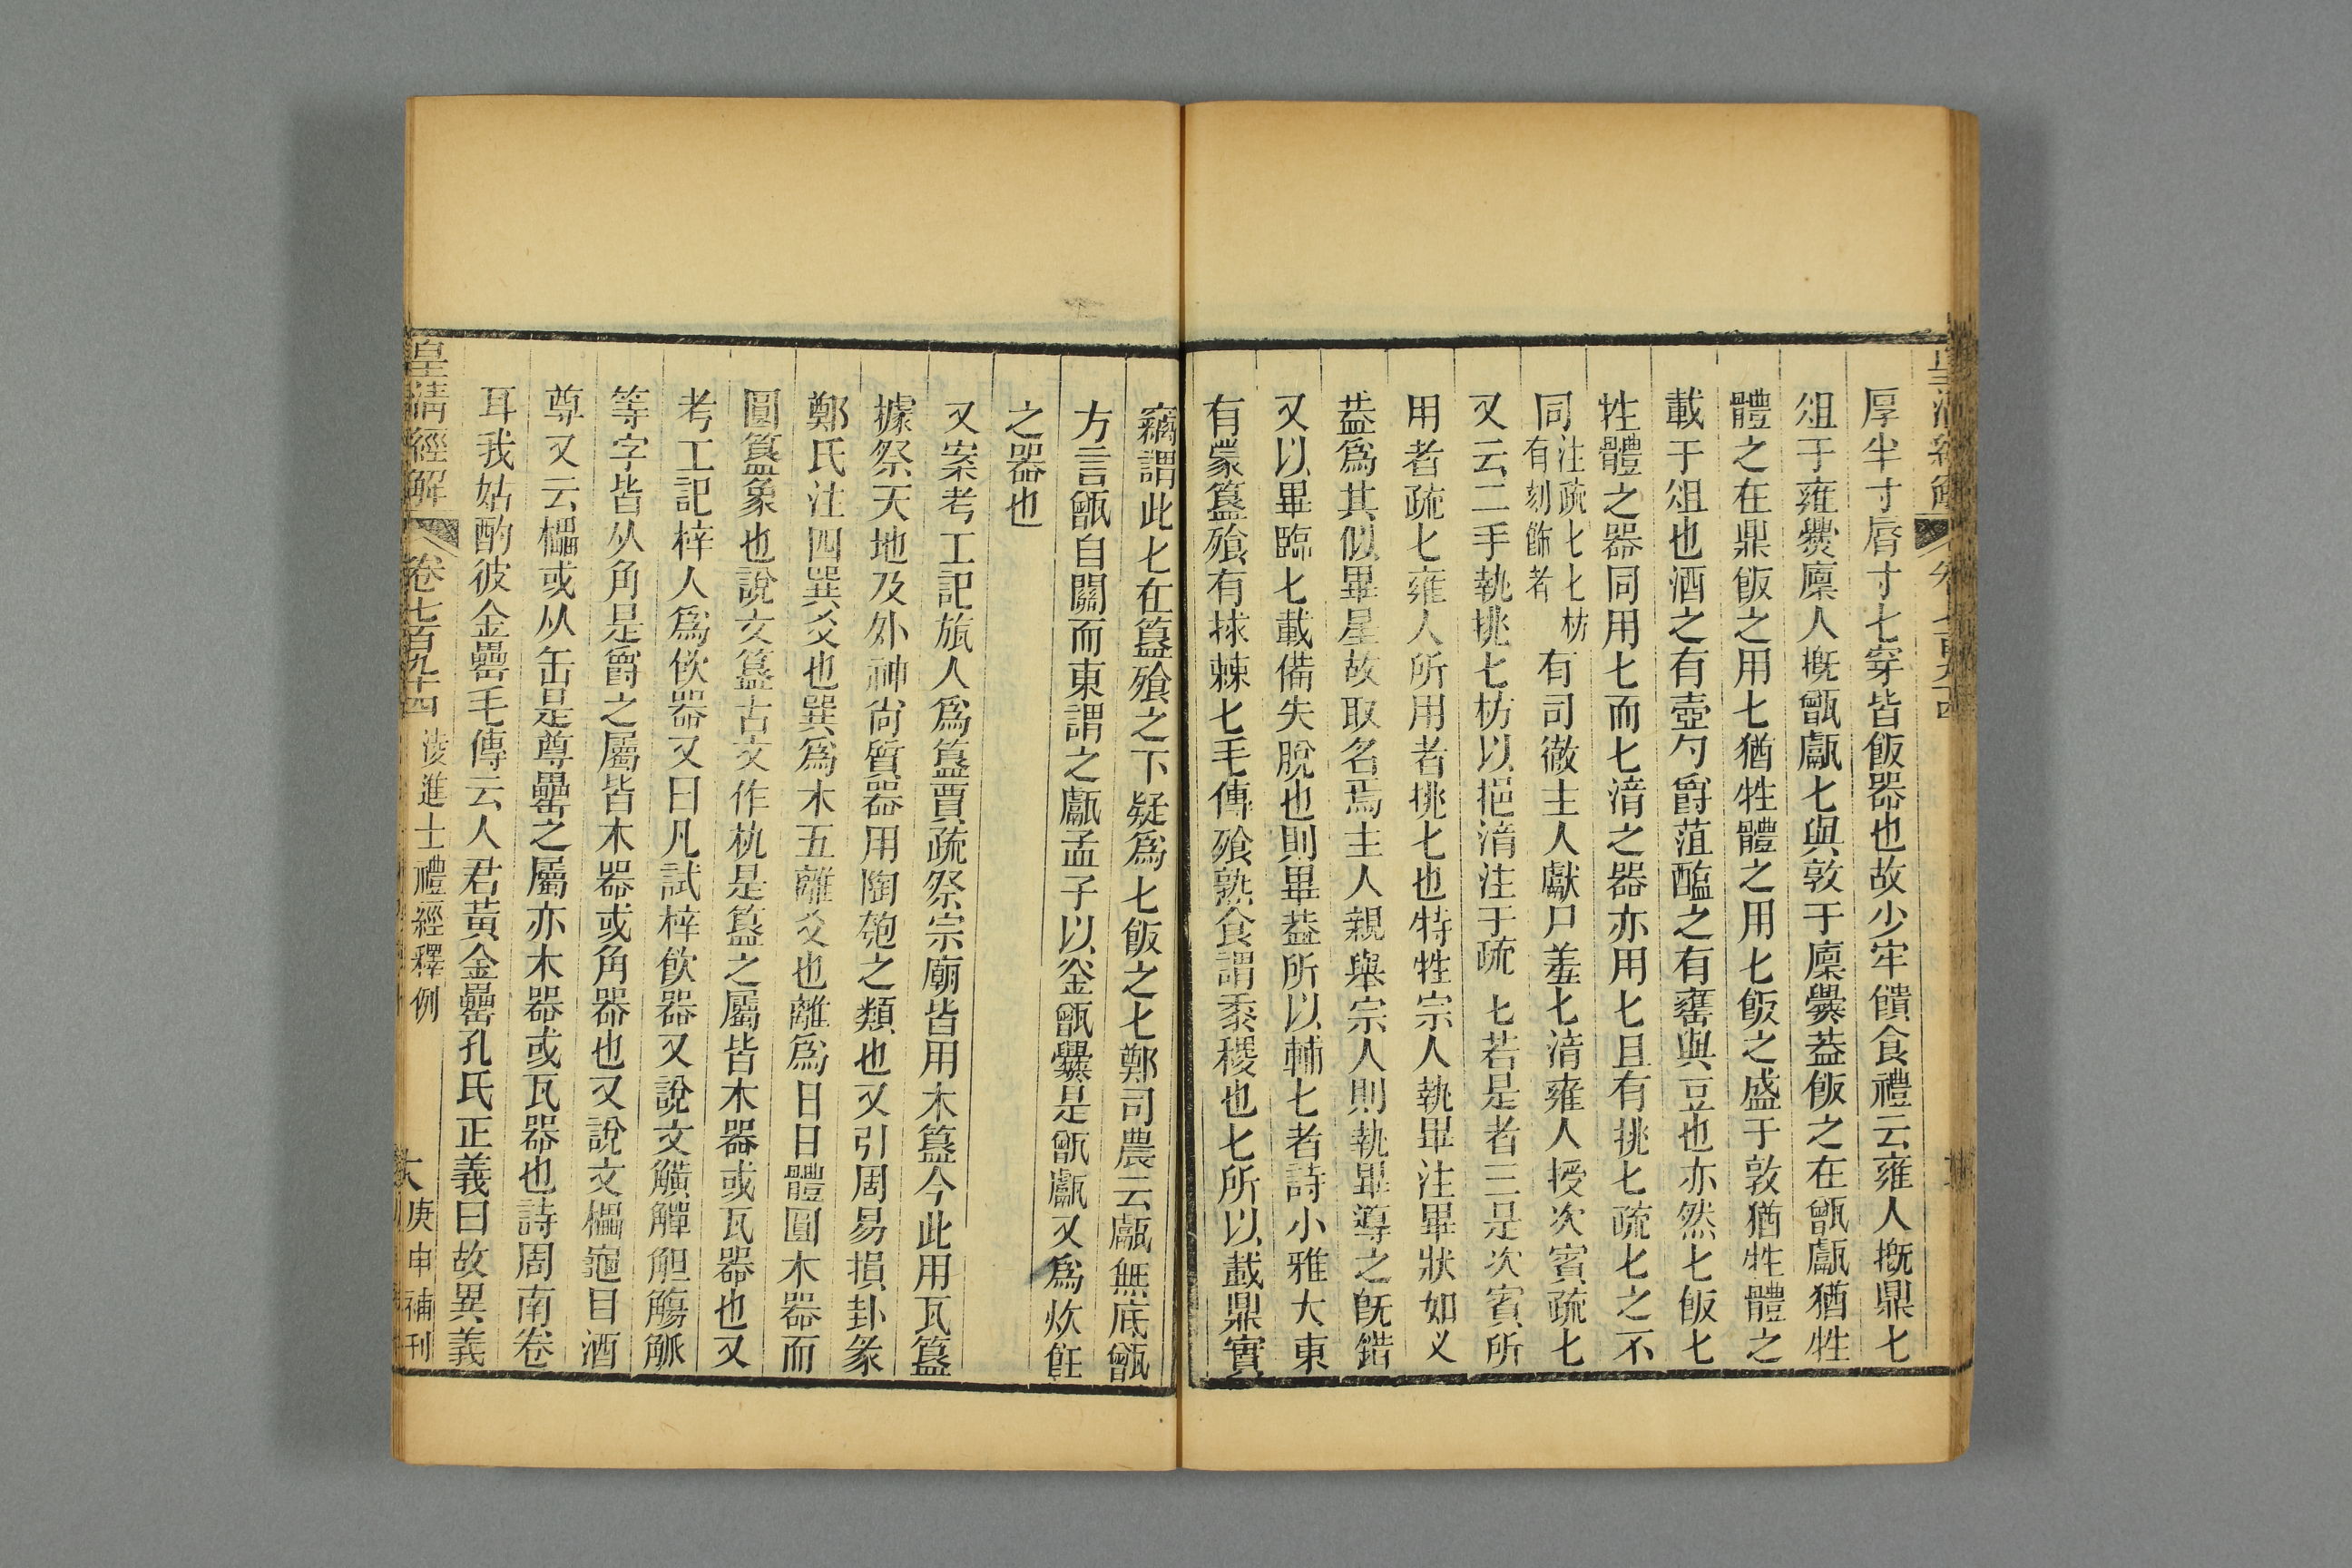 厚半寸脣寸七穿皆飯器也故少牢饋食禮云雍人摡鼎匕
俎于雍爨廩人摡甑甗匕與敦于廩爨葢飯之在甑甗猶牲
體之在鼎飯之用匕猶牲體之用匕飯之盛于敦猶牲體之
載于俎也酒之有壺勺爵菹醢之有罋與豆也亦然匕飯匕
牲體之器同用匕而匕湇之器亦用匕且有挑匕疏匕之不
同注疏匕匕枋有刻飾者有司徹主人獻尸羞匕湇雍人授次賓疏匕
又云二手執挑匕枋以挹湇注于疏匕若是者三是次賓所
用者疏匕雍人所用者挑匕也特牲宗人執畢注畢狀如乂
葢爲其似畢星故取名焉主人親舉宗人則執畢導之旣錯
又以畢臨匕載備失脫也則畢葢所以輔匕者詩小雅大東
有饛簋飱有捄棘匕毛傳飱熟食謂黍稷也匕所以載鼎實
竊謂此匕在簋飱之下疑爲匕飯之匕鄭司農云甗無底甑
方言甑自關而東謂之甗孟子以釜甑爨是甑甗又爲炊飪
之器也
又案考工記瓬人爲簋賈疏祭宗廟皆用木簋今此用瓦簋
據祭天地及外神尙質器用陶匏之類也又引周易損卦彖
鄭氏注四巽爻也巽爲木五離爻也離爲日日體圓木器而
圓簋象也說文簋古文作朹是簋之屬皆木器或瓦器也又
考工記梓人爲飮器又曰凡試梓飮器又說文觵觶觛觴觚
等字皆从角是爵之屬皆木器或角器也又說文櫑龜目酒
尊又云櫑或从缶是尊罍之屬亦木器或瓦器也詩周南卷
耳我姑酌彼金罍毛傳云人君黃金罍孔氏正義曰故異義
皇淸經解 卷七百九十四 淩進士禮經釋例 大 庚申補刊